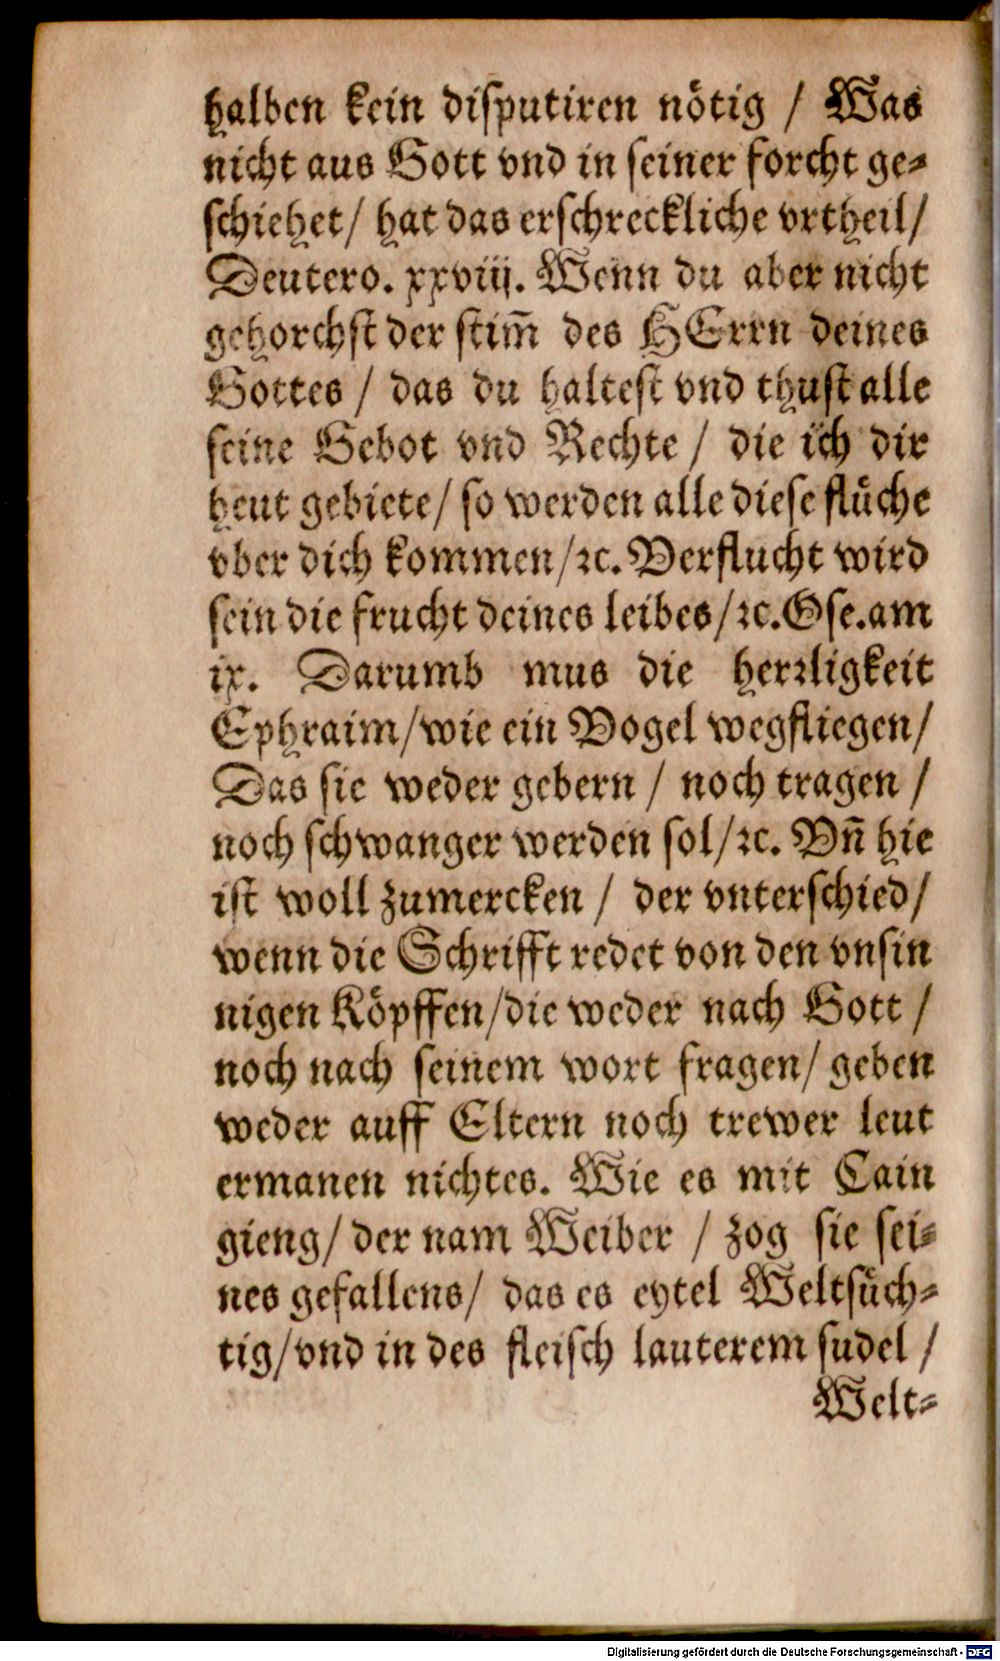 halben kein disputiren nötig / Was
nicht aus Gott vnd in seiner forcht ge-
schiehet/ hat das erschreckliche vrtheil/
Deutero. xxviij. Wenn du aber nicht
gehorchst der stim̃ des HErrn deines
Gottes / das du haltest vnd thust alle
seine Gebot vnd Rechte / die ich dir
heut gebiete/ so werden alle diese flüche
vber dich kommen/ꝛc. Verflucht wird
sein die frucht deines leibes/ꝛc. Ose. am
ix. Darumb mus die herrligkeit
Ephraim/wie ein Vogel wegfliegen/
Das sie weder gebern / noch tragen /
noch schwanger werden sol/ꝛc. Vñ hie
ist woll zumercken / der vnterschied/
wenn die Schrifft redet von den vnsin
nigen Köpffen/die weder nach Gott /
noch nach seinem wort fragen/ geben
weder auff Eltern noch trewer leut
ermanen nichtes. Wie es mit Cain
gieng/ der nam Weiber / zog sie sei-
nes gefallens/ das es eytel Weltsüch-
tig/vnd in des fleisch lauterem sudel /
Welt-
Digitalisierung gefördert durch die Deutsche Forschungsgemeinschaft - DFG